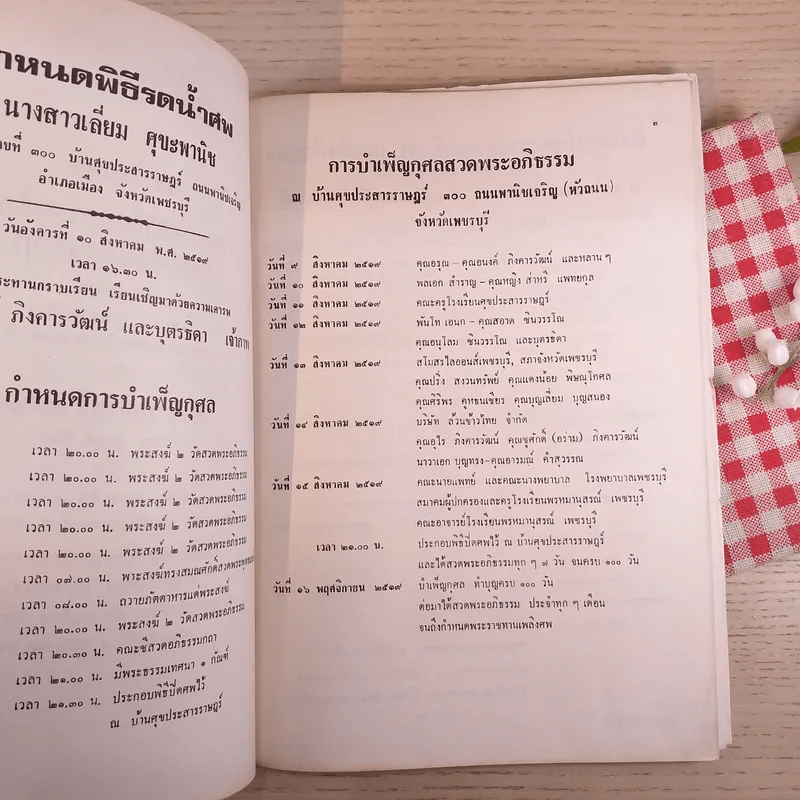 กำหนดพิธีรดน้ำศพ
นางสาวเลี่ยม ศุขะพานิช
๓๐๐ บ้านศุขประสารราษฎร์ ถนนพานิชเจริญ
อำเภอเมือง จังหวัดเพชรบุรี
วันอังคารที่ ๑๐ สิงหาคม พ.ศ. ๒๕๑๙
เวลา ๑๖.๓๐ น.
ประทานกราบเรียน เรียนเชิญมาด้วยความเคารพ
ภิงคารวัฒน์ และบุตรธิดา เจ้าภาพ
กำหนดการบำเพ็ญกุศล
เวลา ๒๐.๐๐ น. พระสงฆ์ ๒ วัดสวดพระอภิธรรม
เวลา ๒๐.๐๐ น. พระสงฆ์ ๒ วัดสวดพระอภิธรรม
เวลา ๒๐.๐๐ น. พระสงฆ์ ๒ วัดสวดพระอภิธรรม
เวลา ๒๐.๐๐ น. พระสงฆ์ ๒ วัดสวดพระอภิธรรม
เวลา ๒๐.๐๐ น. พระสงฆ์ ๒ วัดสวดพระอภิธรรม
เวลา ๐๗.๐๐ น. พระสงฆ์ทรงสมณศักดิ์สวดพระพุทธมนต์
เวลา ๐๘.๐๐ น. ถวายภัตตาหารแด่พระสงฆ์
เวลา ๒๐.๐๐ น. พระสงฆ์ ๒ วัดสวดพระอภิธรรม
เวลา ๒๐.๓๐ น. คณะชีสวดอภิธรรมกถา
เวลา ๒๑.๐๐ น. มีพระธรรมเทศนา ๑ กัณฑ์
เวลา ๒๑.๓๐ น. ประกอบพิธีปิดศพไว้
ณ บ้านศุขประสารราษฎร์
๓
การบำเพ็ญกุศลสวดพระอภิธรรม
ณ บ้านศุขประสารราษฎร์ ๓๐๐ ถนนพานิชเจริญ (หัวถนน)
จังหวัดเพชรบุรี
วันที่ ๙ สิงหาคม ๒๕๑๙ คุณอรุณ – คุณอนงค์ ภิงคารวัฒน์ และหลาน ๆ
วันที่ ๑๐ สิงหาคม ๒๕๑๙ พลเอก สำราญ – คุณหญิง ส่าหรี แพทยกุล
วันที่ ๑๑ สิงหาคม ๒๕๑๙ คณะครูโรงเรียนศุขประสารราษฎร์
วันที่ ๑๒ สิงหาคม ๒๕๑๙ พันโท เอนก – คุณสอาด ชินวรรโณ
คุณอนุโลม ชินวรรโณ และบุตรธิดา
วันที่ ๑๓ สิงหาคม ๒๕๑๙ สโมสรไลออนส์เพชรบุรี, สภาจังหวัดเพชรบุรี
คุณปริ่ง สงวนทรัพย์ คุณแดงน้อย พิษณุโกศล
คุณศิริพร คูหธนเชียร คุณบุญเลี่ยม บุญสนอง
วันที่ ๑๔ สิงหาคม ๒๕๑๙ บริษัท ล้วนข้าวไทย จำกัด
คุณอุไร ภิงคารวัฒน์ คุณชูศักดิ์ (อร่าม) ภิงคารวัฒน์
นาวาเอก บุญทรง–คุณอารมณ์ คำสุวรรณ
วันที่ ๑๕ สิงหาคม ๒๕๑๙ คณะนายแพทย์ และคณะนางพยาบาล โรงพยาบาลเพชรบุรี
สมาคมผู้ปกครองและครูโรงเรียนพรหมานุสรณ์ เพชรบุรี
คณะอาจารย์โรงเรียนพรหมานุสรณ์ เพชรบุรี
เวลา ๒๑.๐๐ น. ประกอบพิธีปิดศพไว้ ณ บ้านศุขประสารราษฎร์
และได้สวดพระอภิธรรมทุก ๆ ๗ วัน จนครบ ๑๐๐ วัน
วันที่ ๑๖ พฤศจิกายน ๒๕๑๙ บำเพ็ญกุศล ทำบุญครบ ๑๐๐ วัน
ต่อมาได้สวดพระอภิธรรม ประจำทุก ๆ เดือน
จนถึงกำหนดพระราชทานเพลิงศพ